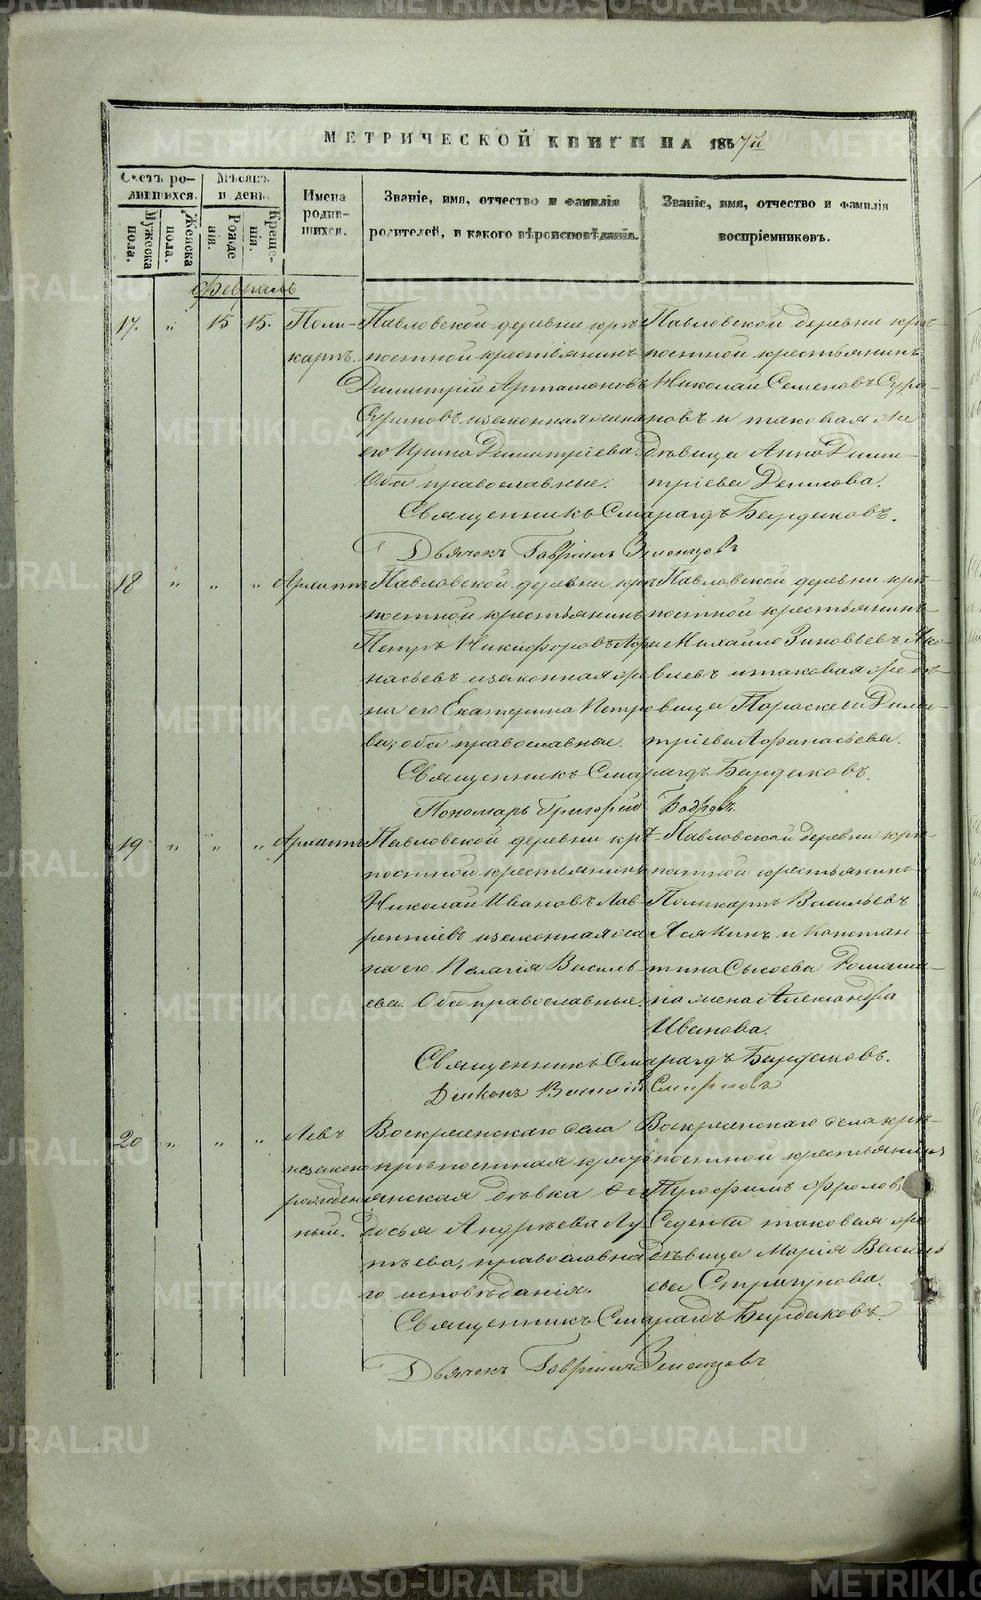 МЕТРИЧЕСКОЙ КНИГИ НА 1857й
Счетъ родившихся.
Мужеска пола.
Женска пола.
Мѣсяцъ и день.
Рожденія.
Крещенія.
Имена родившихся.
Званіе, имя, отчество и фамилія
родителей, и какого вѣроисповѣданія.
Званіе, имя, отчество и фамилія
воспріемниковъ.
Февраль
17. " 15 15. Поли-
карпъ.
Павловской деревни крѣ-
постной крестьянинъ
Димитрій Артамоновъ
и законная жена
его Ирина Димитріева.
Оба православные.
Павловской деревни крѣ-
постной крестьянинъ
Николай Семеновъ
и таковая же
дѣвица Анна Дими-
тріева Денисова.
Священникъ Смарагдъ Бурдуковъ.
Дьячокъ Гавріилъ
18 " " "
Павловской деревни крѣ-
постной крестьянинъ
Петръ Никифоровъ Афа-
насьевъ и законная же-
на его Екатерина Петро-
ва; оба православные.
Павловской деревни крѣ-
постной крестьянинъ
Михайло Зиновьевъ Яко-
влевъ и таковая же дѣ-
вица Параскева Дими-
тріева Афанасьева.
Священникъ Смарагдъ
Пономарь Григорій Бобровъ.
19 " " "
Павловской деревни крѣ-
постной крестьянинъ
Николай Ивановъ Лав-
рентіевъ и законная же-
на его Пелагія Василь-
ева. Оба православные.
Павловской деревни крѣ-
постной крестьянинъ
Поликарпъ Васильевъ
и Констан-
тина Сысоева
жена Александра
Иванова.
Священникъ Смарагдъ
Діаконъ Василій Смирновъ
20 " " " Левъ
незаконо
рожден-
ный.
Воскресенскаго села
крѣпостная кресть-
янская дѣвка Ѳео-
досья Андрѣева
православна-
го исповѣданія.
Воскресенскаго села крѣ-
постной крестьянинъ
Трофимъ Фроловъ
таковая же
дѣвица Марія Василь-
ева
Священникъ Смарагдъ
Дьячокъ Гавріилъ
METRIKI.GASO-URAL.RU